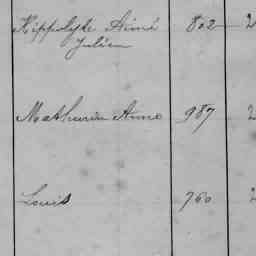 Hippolyte Aimé 802 2
Julien
Mathurin Anne 987 2
Louis 760 2